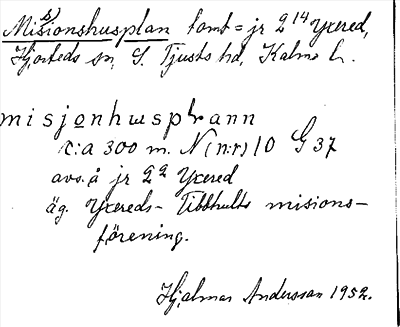 Mis(s)ionshusplan tomt = jr 2¹⁴ Yxered,
Hjorteds sn, S. Tjusts hd, Kalmar l.
misjonhusplann
c:a 300 m. N (n:r) 10 G 37
avs. å jr 2² Yxered
äg. Yxereds- Tibbhults misions-
förening.
Hjalmar Andersson 1952.